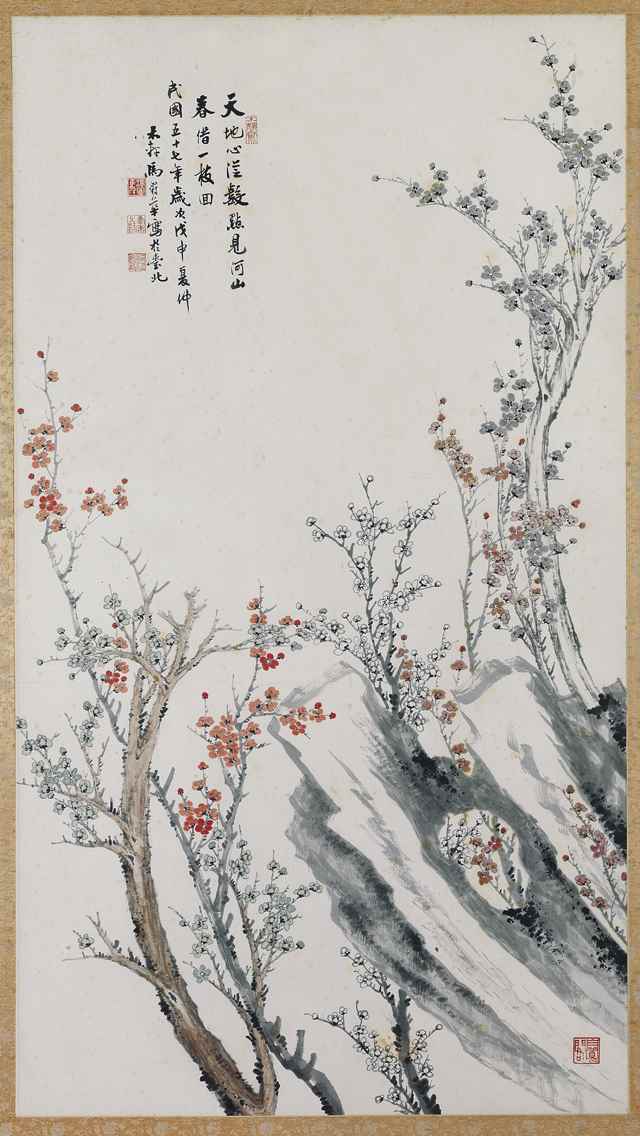 天地心從數點見河山
春借一枝回
民國五十七年歲次戊申夏仲
木軒馬壽華寫於臺北